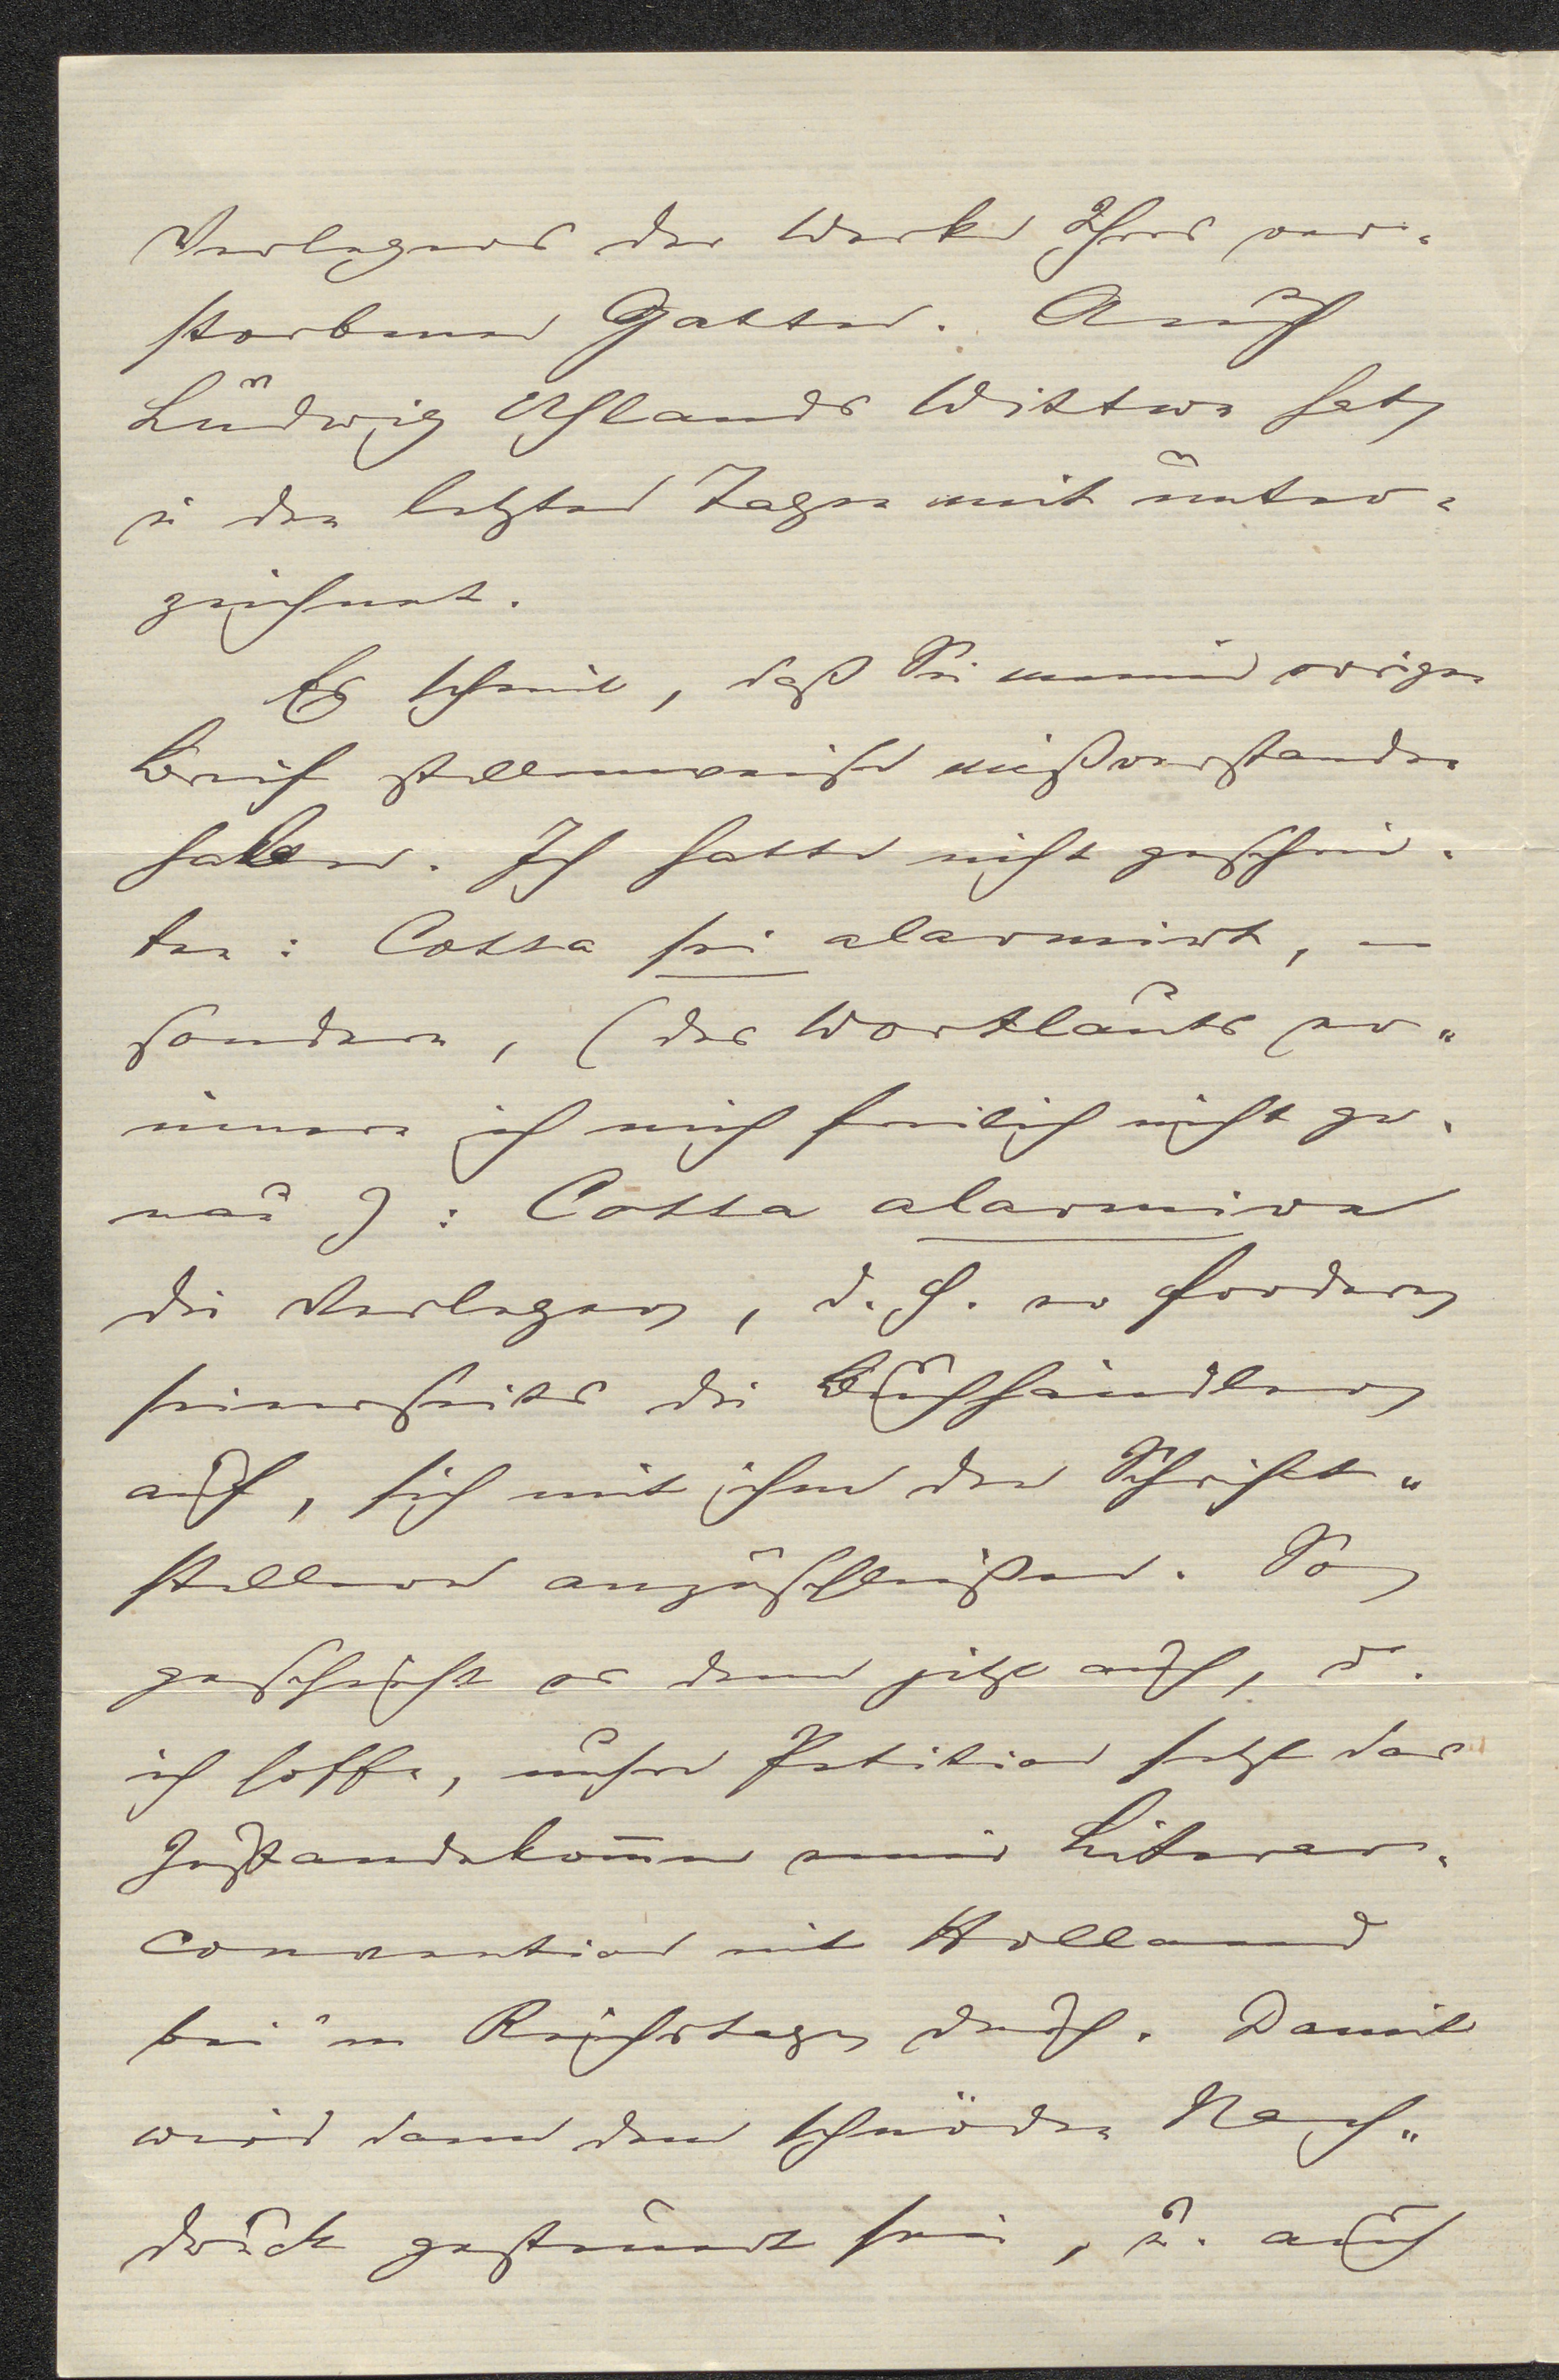 Verlegers der Werke Ihres ver-
storbenen Gatten. Auch
Ludwig Uhlands Wittwe hat
in den letzten Tagen mit unter-
zeichnet.
Es scheint, daß Sie meinen vorigen
Brief stellenweise mißverstanden
haben. Ich hatte nicht geschrie-
ben: Cotta sei alarmirt, –
sondern, (des Wortlauts er-
innere ich mich freilich nicht ge-
nau): Cotta alarmire
die Verleger, d. h. er fordere
seinerseits die Buchhändler
auf, sich mit ihm den Schrift-
stellern anzuschließen. So
geschieht es denn jetzt auch, u.
ich hoffe, unsre Petition setzt das
Zustandekom̅en einer Literar-
convention mit Holland
bei'm Reichstage durch. Damit
wird dann dem schnöden Nach-
druck gesteuert sein, u. auch